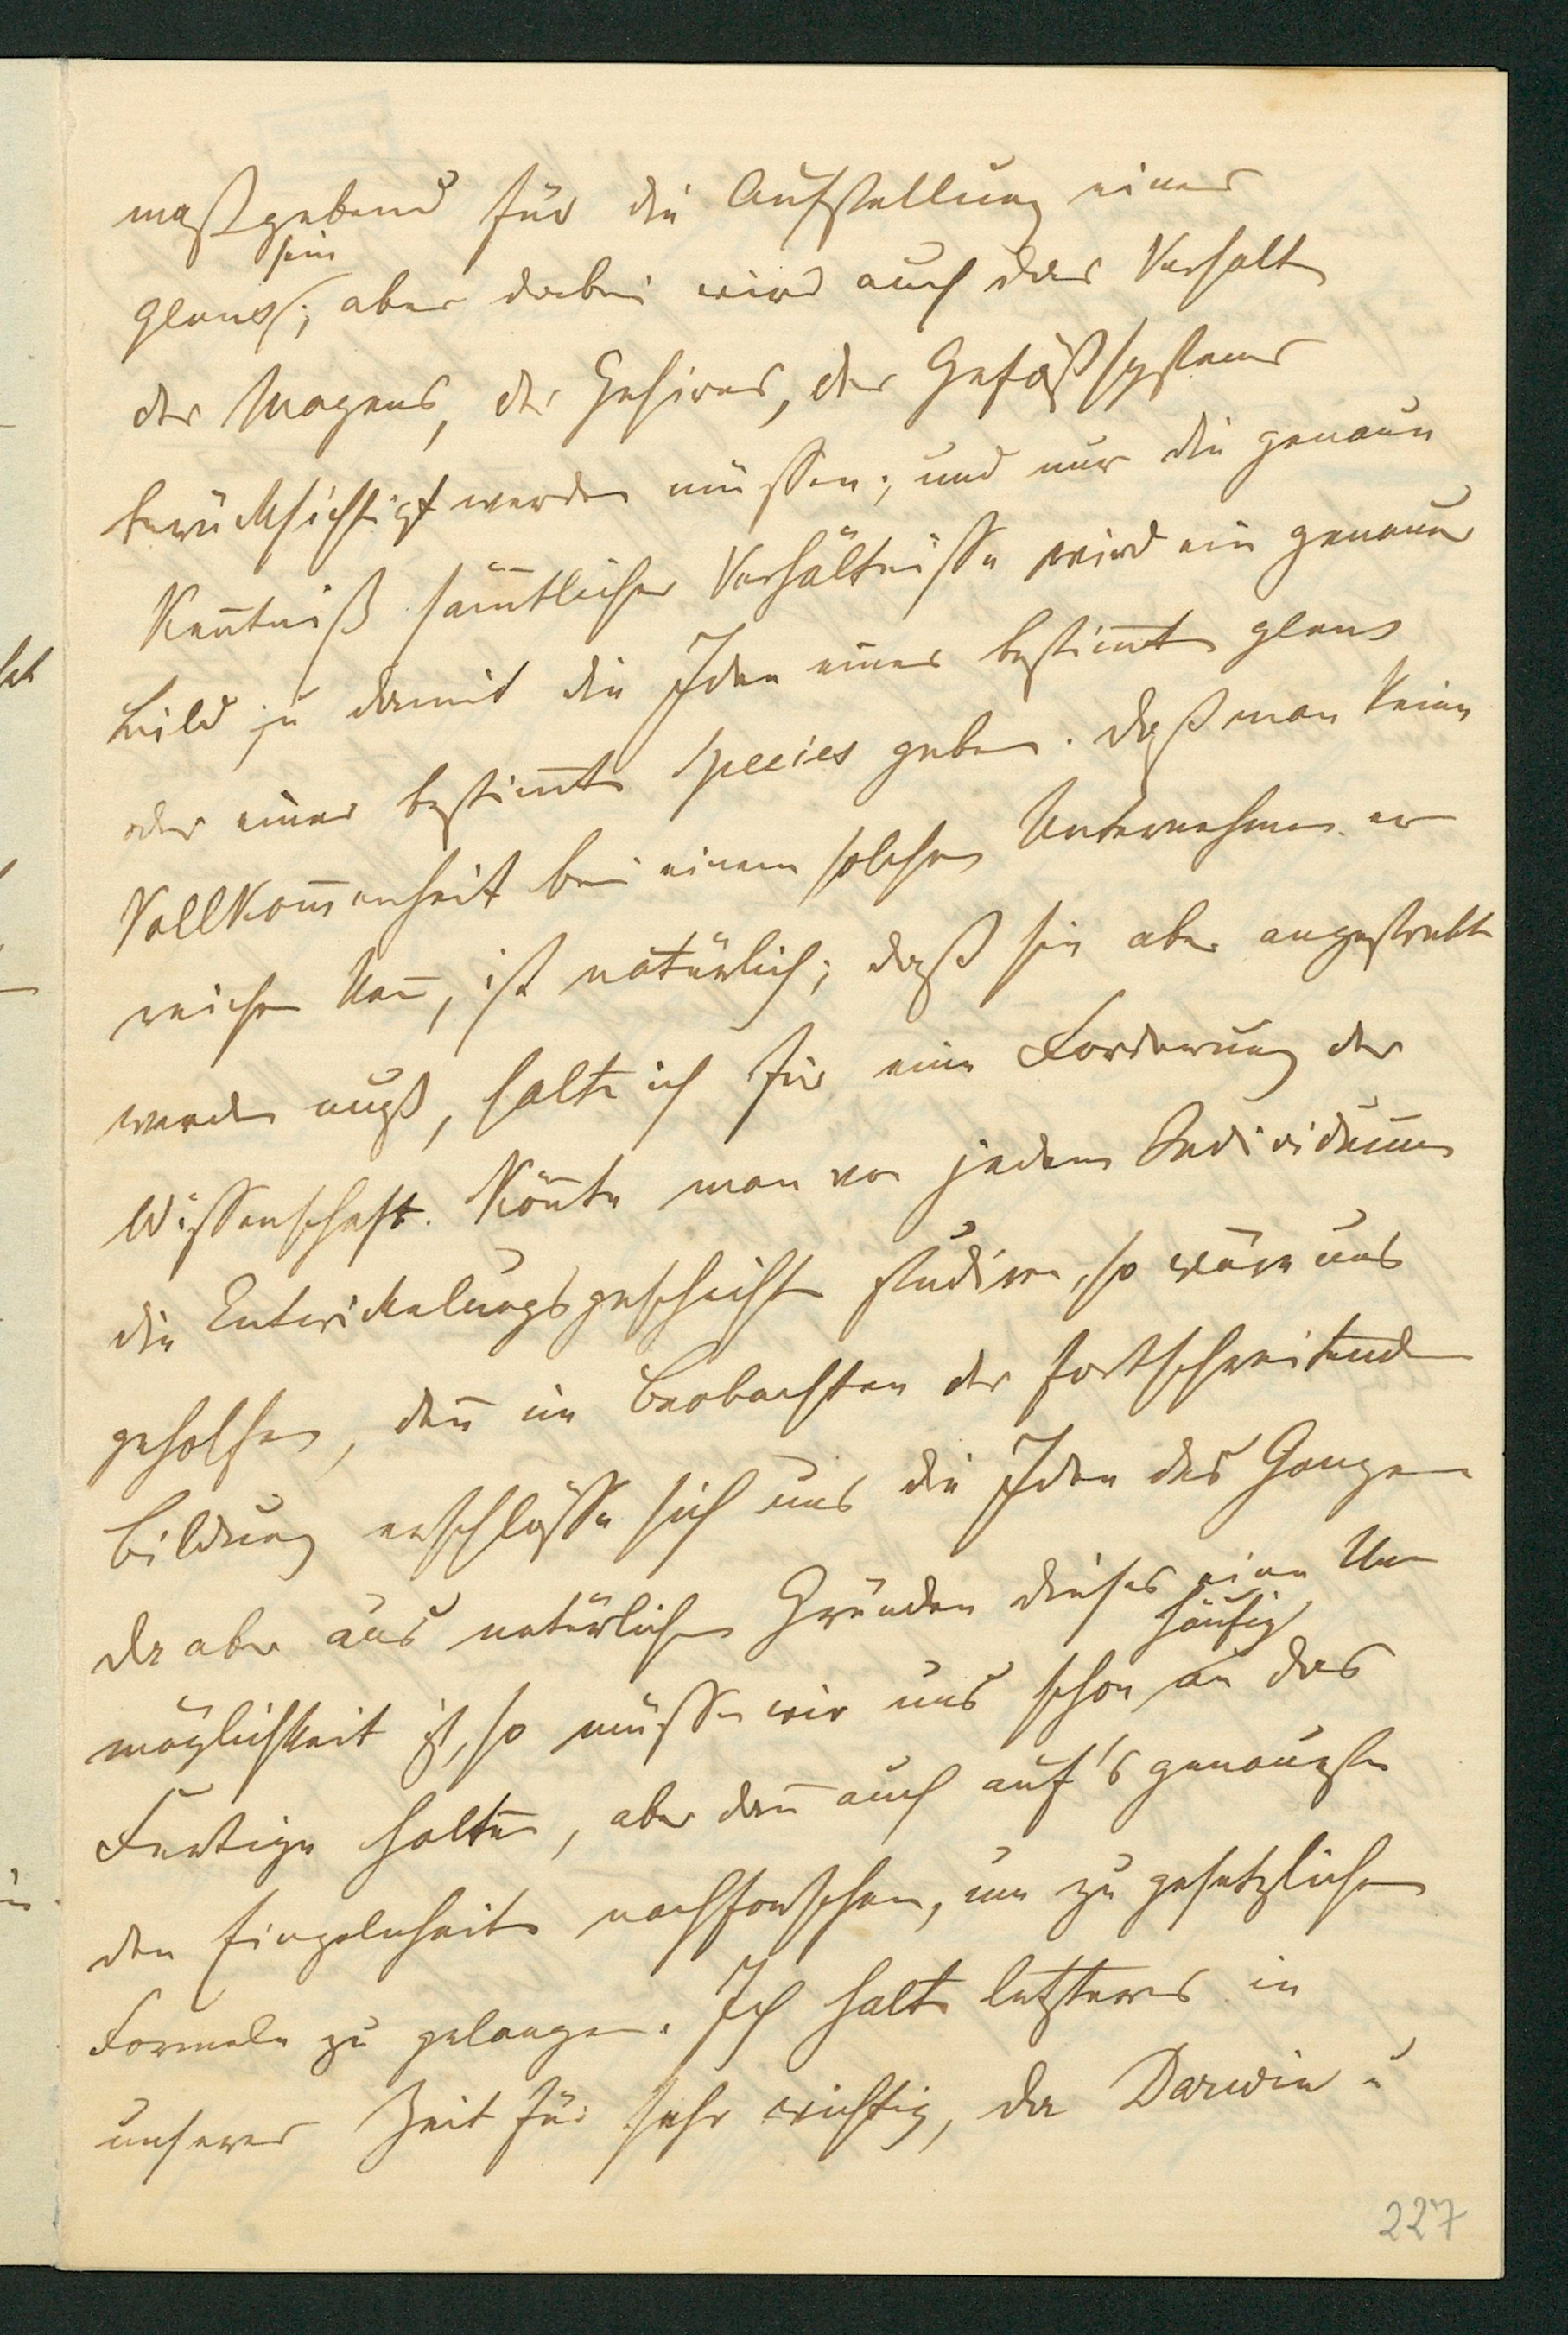 maßgebend für die Aufstellung eines
sein
genus; aber dabei wird auch das Verhalten
des Magens, des Gehirns, des Gefäßsystems
berücksichtigt werden müssen; und nur die genaue
Kenntniß sämtlicher Verhältnisse wird ein genaues
Bild u damit die Idee eines bestimten genus
oder einer bestimten Species geben. Daß man keine
Vollkom̄enheit bei einem solchen Unternehmen er
reichen kan̄, ist natürlich; daß sie aber angestrebt
werden muß, halte ich für eine Forderung der
Wissenschaft. Kön̄te man von jedem Individuum
die Entwickelungsgeschichte studiren, so wäre uns
geholfen, den̄ im Beobachten der fortschreitenden
Bildung erschlösse sich uns die Idee des Ganzen
Da aber aus natürlichen Gründen dieses eine Un
häufig
möglichkeit ist, so müssen wir uns schon an das
Fertige halten, aber dan̄ auch auf's genaueste
den Einzelnheiten nachforschen, um zu gesetzlichen
Formeln zu gelangen. Ich halte letzteres in
unserer Zeit für sehr wichtig, da Darwin u
227